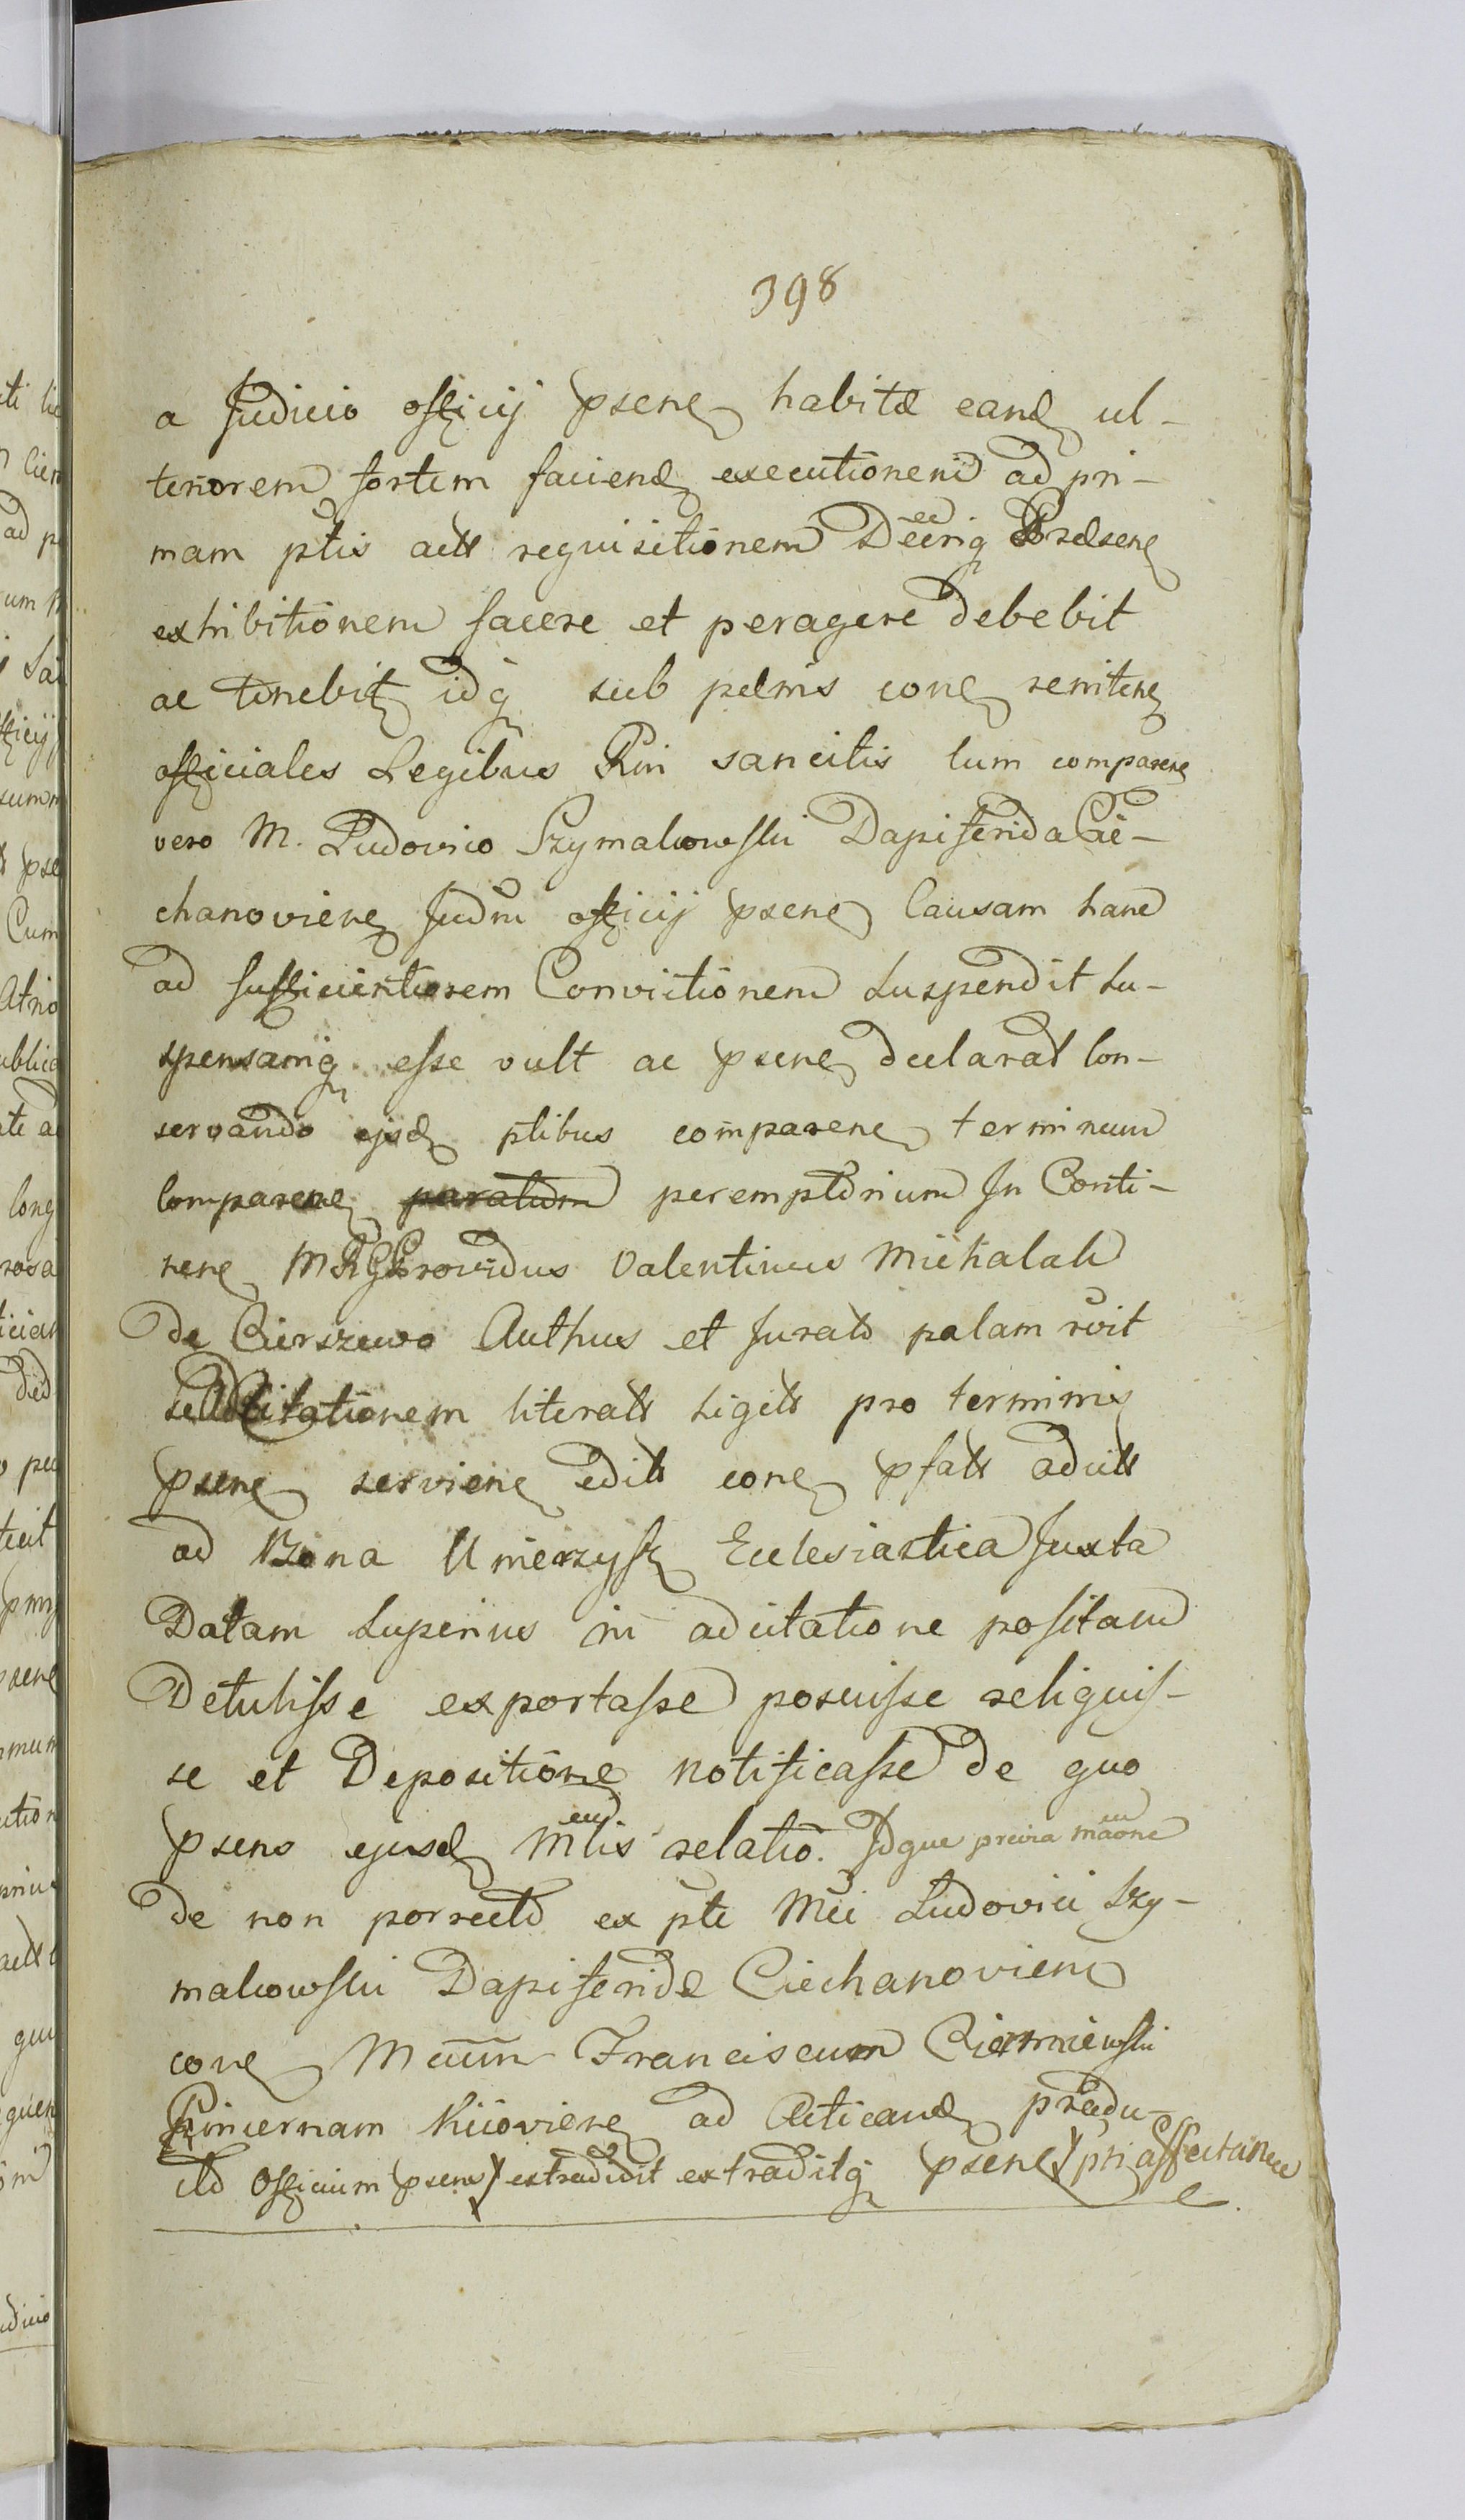 398
a Judicio officij psene habitæ eand ul-
teriorem fortem faciend executionem ad pri-
mam ptis actt requisitionem Deeriq Præsene
exhibitionem facere et peragere debebit
ac tenebit idq sub pænis cone reniten
officiales Legibus Rni sancitis Cum comparene
vero M. Ludovico Szymakowski Dapiferida Cie-
chanoviene Judm officij psene Causam hanc
ad sufficientiorem Convictionem Suspendit Su-
spensamq esse vult ac psene declarat Con-
servando ejsd ptibus comparene terminum
Comparene paratum peremptorium In Conti-
nene MRG Providus Valentinus Michalak
de Cierszewo Authus et Juratt palam rcvit
se Citationem literatt Sigitt pro terminis
psene serviene editt cone pfatt adcitt
ad Bona Umierzysz Ecclesiastica Juxta
Datam Superius in adcitatione positam
Detulisse exportasse posuisse reliquis-
se et Depositione notificasse de quo
psens ejusd Mtlis relatio. Idque previa maone
de non porrecta ex pte Mci Ludovici Szy-
makowski Dapiferidæ Ciechanoviene
cone Mcum Franciscum Cierniewski
Pincernam Kiioviene ad Acticand produ-
ctt Officium psens extradidit extraditq psene pri affectanee